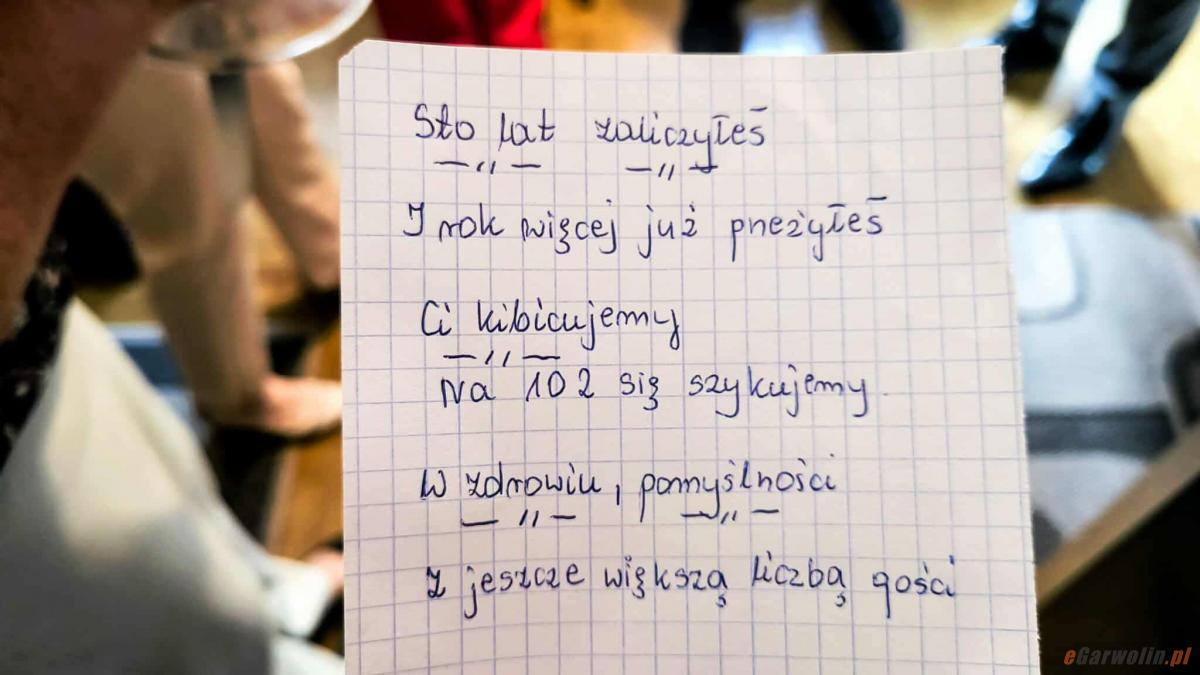 Sto lat zaliczyłeś
— „ — — „ —
I rok więcej już przeżyłeś
Ci kibicujemy
— „ —
Na 102 się szykujemy
W zdrowiu, pomyślności
— „ — — „ —
Z jeszcze większą liczbą gości
eGarwolin.pl